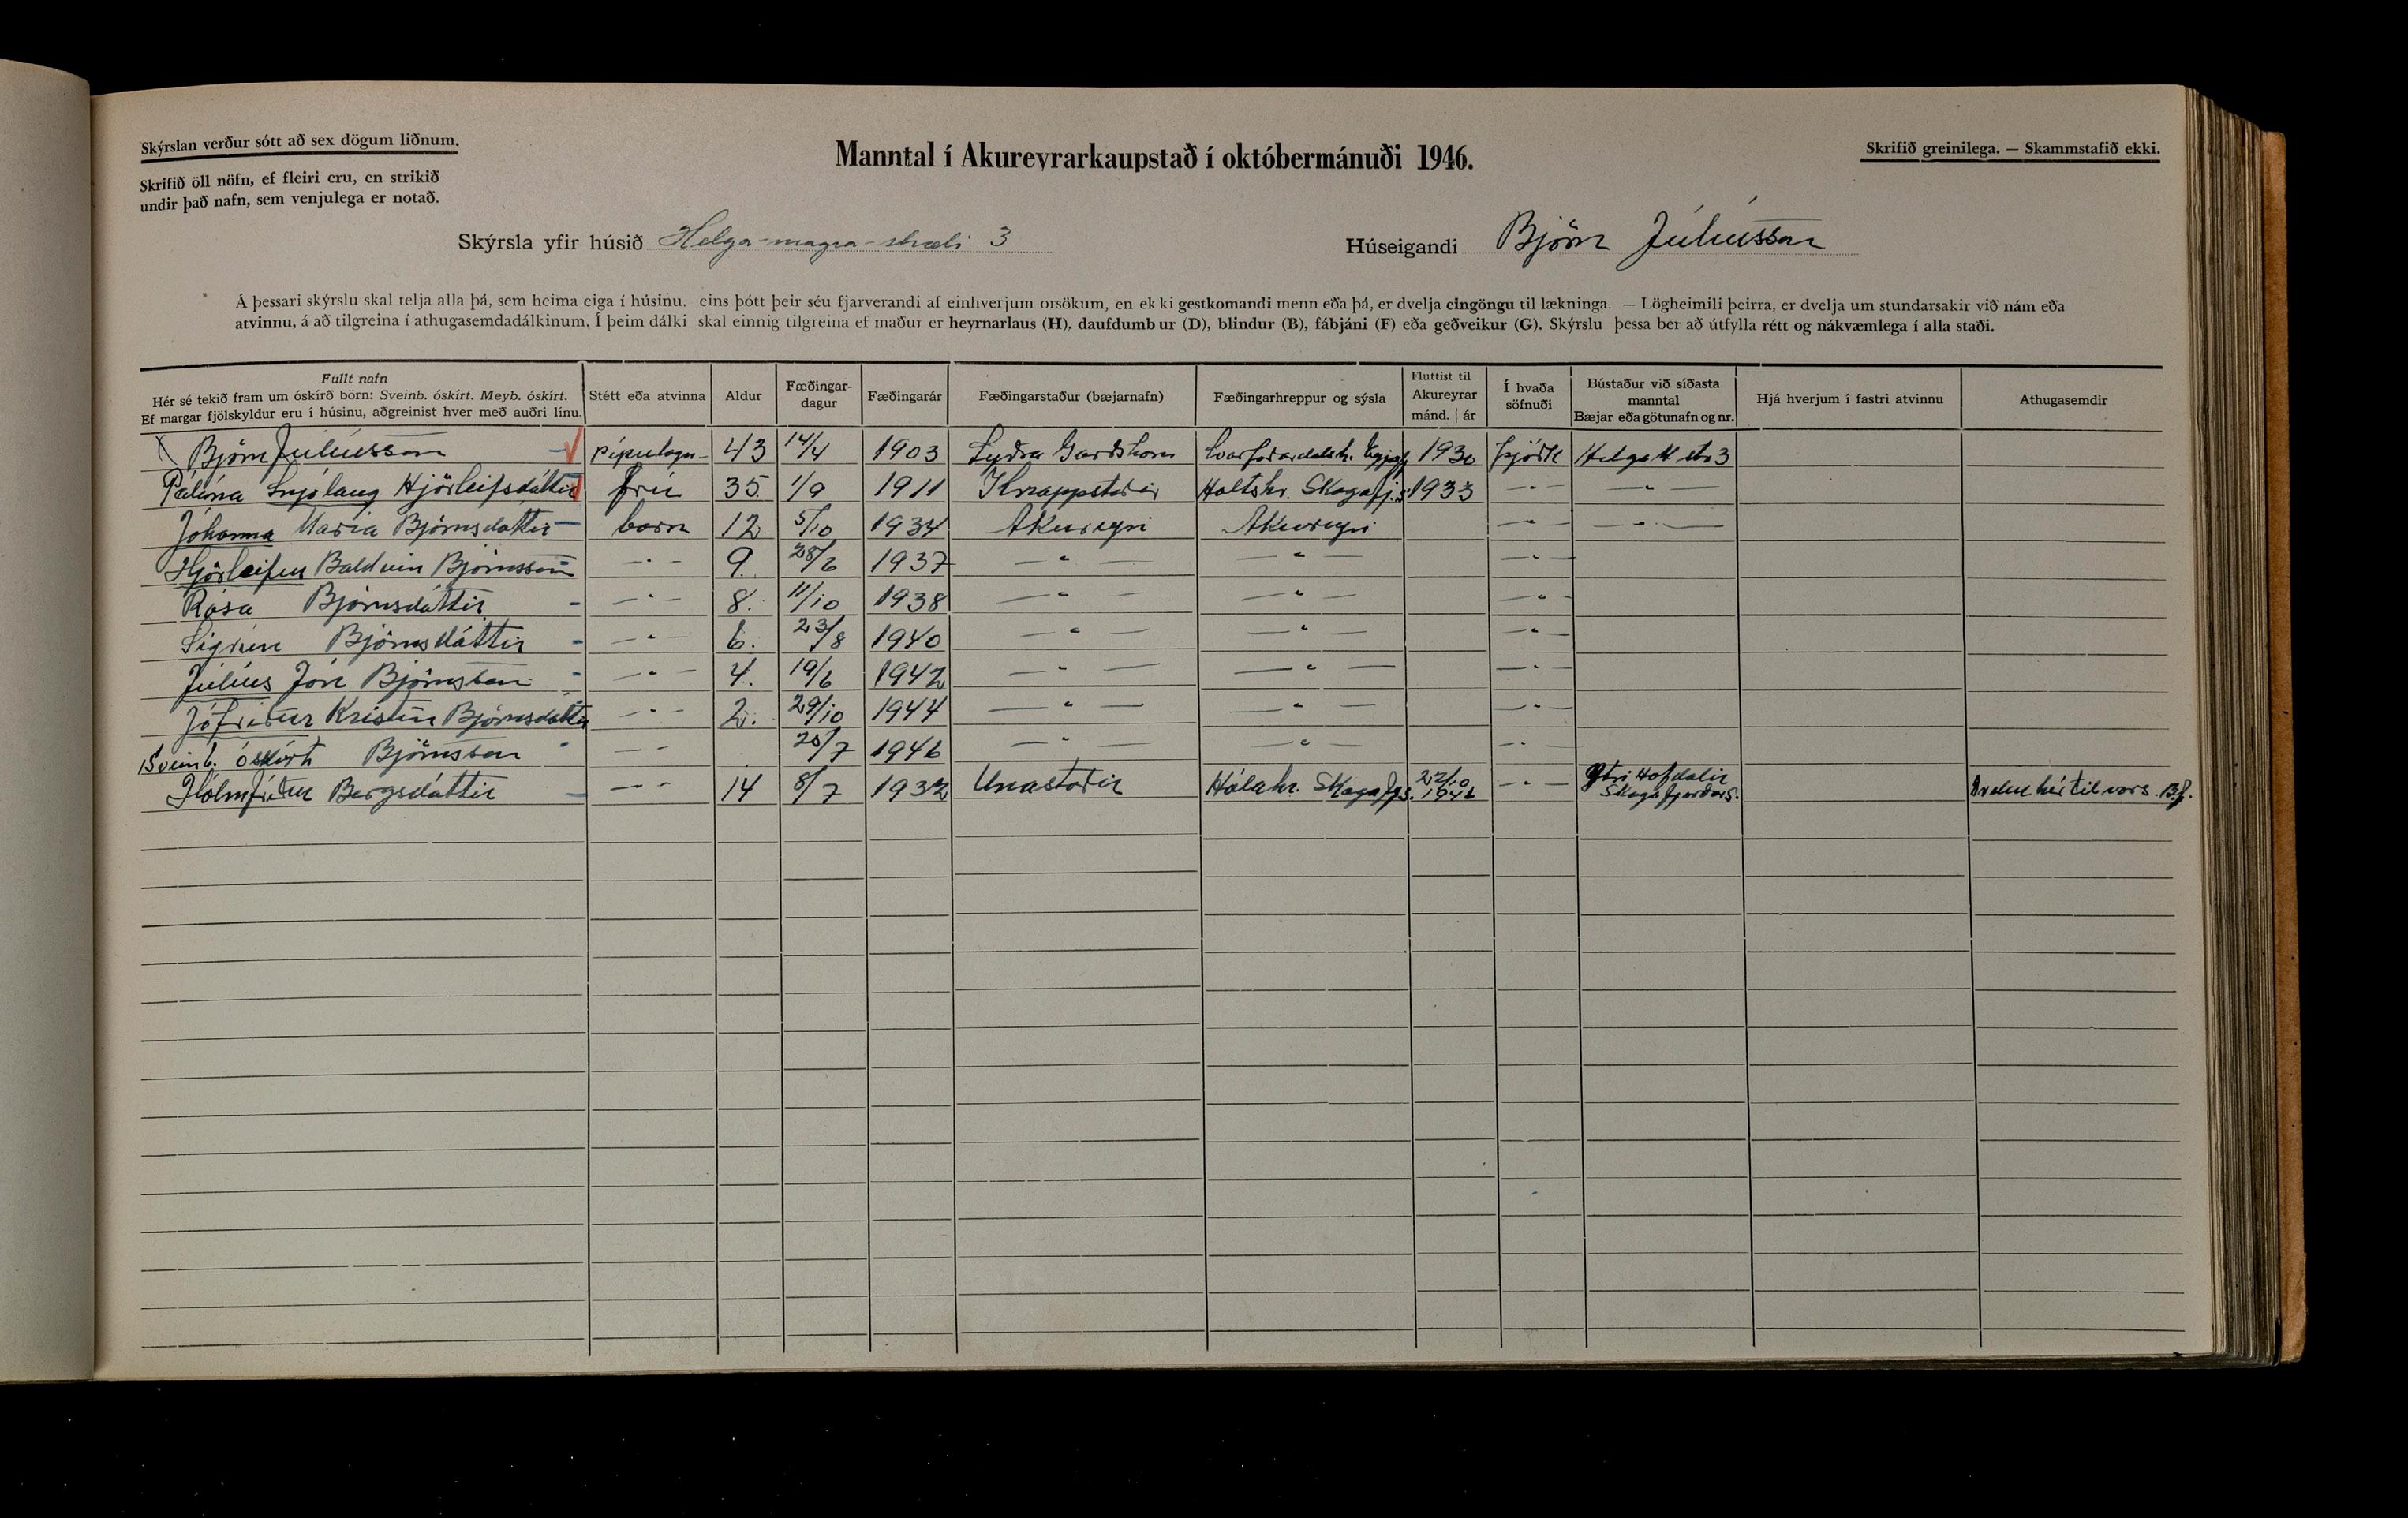 Skýrslan verður sótt að sex dögum liðnum.
Skrifið öll nöfn, ef fleiri eru, en strikið
undir það nafn, sem venjulega er notað.
Manntal í Akureyrarkaupstað í októbermánuði 1946.
Skrifið greinilega. — Skammstafið ekki.
Skýrsla yfir húsið Helga-magra-stræti 3 Húseigandi Björn Júlíusson
Á þessari skýrslu skal telja alla þá, sem heima eiga í húsinu, eins þótt þeir séu fjarverandi af einhverjum orsökum, en ekki gestkomandi menn eða þá, er dvelja eingöngu til lækninga. — Lögheimili þeirra, er dvelja um stundarsakir við nám eða
atvinnu, á að tilgreina í athugasemdadálkinum. Í þeim dálki skal einnig tilgreina ef maður er heyrnarlaus (H), daufdumbur (D), blindur (B), fábjáni (F) eða geðveikur (G). Skýrslu þessa ber að útfylla rétt og nákvæmlega í alla staði.
Fullt nafn
Hér sé tekið fram um óskírð börn: Sveinb. óskírt. Meyb. óskírt.
Ef margar fjölskyldur eru í húsinu, aðgreinist hver með auðri línu.
Stétt eða atvinna
Aldur
Fæðingar-
dagur
Fæðingarár
Fæðingarstaður (bæjarnafn)
Fæðingarhreppur og sýsla
Fluttist til
Akureyrar
mánd. | ár
Í hvaða
söfnuði
Bústaður við síðasta
manntal
Bæjar eða götunafn og nr.
Hjá hverjum í fastri atvinnu
Athugasemdir
Björn Júlíusson pípulagn- 43 14/4 1903 Sydra Gardshorn Svarfaradalshr. 1930 þjódk Helga M str 3
Pálína Snjólaug Hjörleifsdóttir frú 35 1/9 1911 Knappstaðir Holtshr. Skagafj.s. 1933 — " — — " —
Jóhanna María Björnsdóttir barn 12 5/10 1934 Akureyri Akureyri — " — — " —
Hjörleifur Baldvin Björnsson — " — 9. 28/6 1937 — " — — " — — " —
Rósa Björnsdóttir — " — 8. 11/10 1938 — " — — " — — " —
Sigrún Björnsdóttir — " — 6. 23/8 1940 — " — — " — — " —
Júlíus Jón Björnsson — " — 4. 19/6 1942 — " — — " — — " —
Jófríður Kristín Björnsdóttir — " — 2. 29/10 1944 — " — — " — — " —
Sveinb. óskírt Björnsson — " — 20/7 1946 — " — — " — — " —
Hólmfríður Bergsdóttir — " — 14 8/7 1932 Unastaðir Hólahr. Skagafjs. 22/10 1946 — " — Ytri Hofdalir Skagafjarðars. Dvelur hér til vors. B.J.